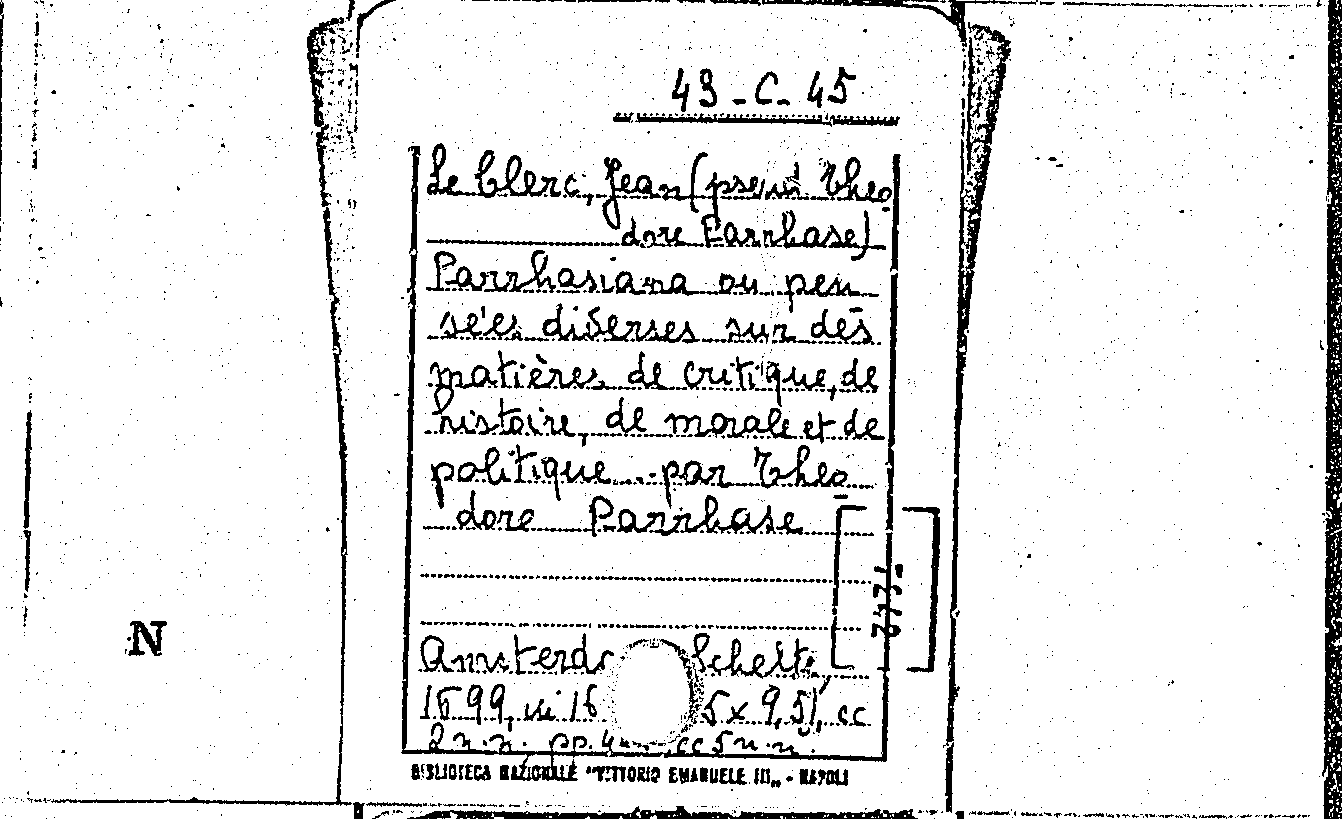 49-C-45
Le Clerc, Jean (pseud Theo
dore Parrhase)
Parrhasiana ou pen
sées diverses sur des
matières de critique, de
histoire, de morale et de
politique ... par Theo
dore Parrhase
N
Schelte,
1699, in 16 5 x 9,5), cc
2 n.n., pp. cc 5 n.n.
BIBLIOTECA NAZIONALE "VITTORIO EMANUELE III„ - NAPOLI